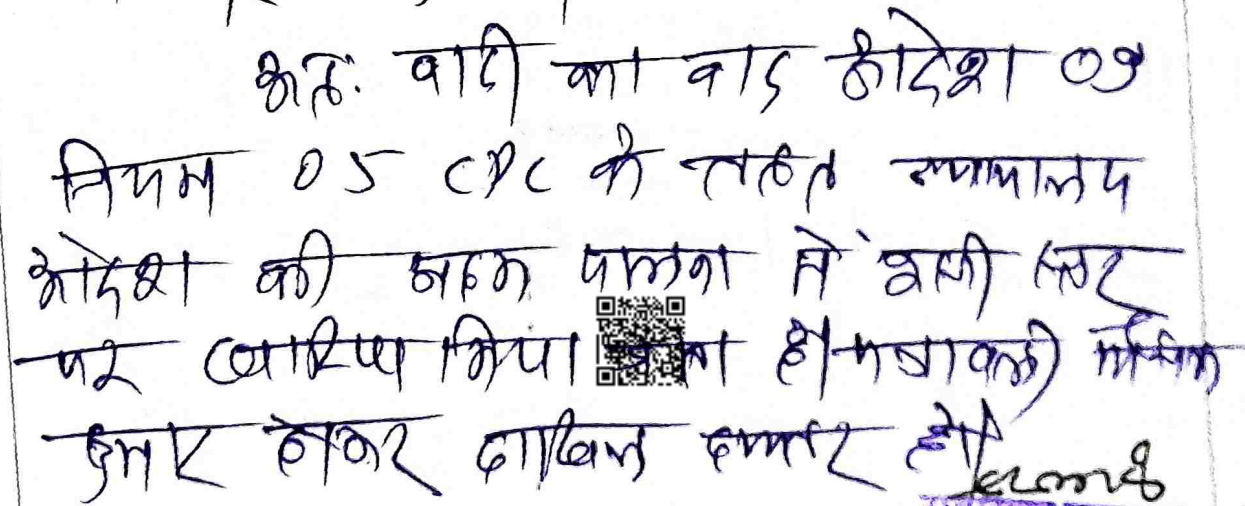 अतः वादी का वाद आदेश 09
नियम 05 CPC के तहत न्यायालय
आदेश की अदम पालना में इसी स्तर
पर खारिज किया जाता है। पत्रावली
शुमार होकर दाखिल दफ्तर हो।